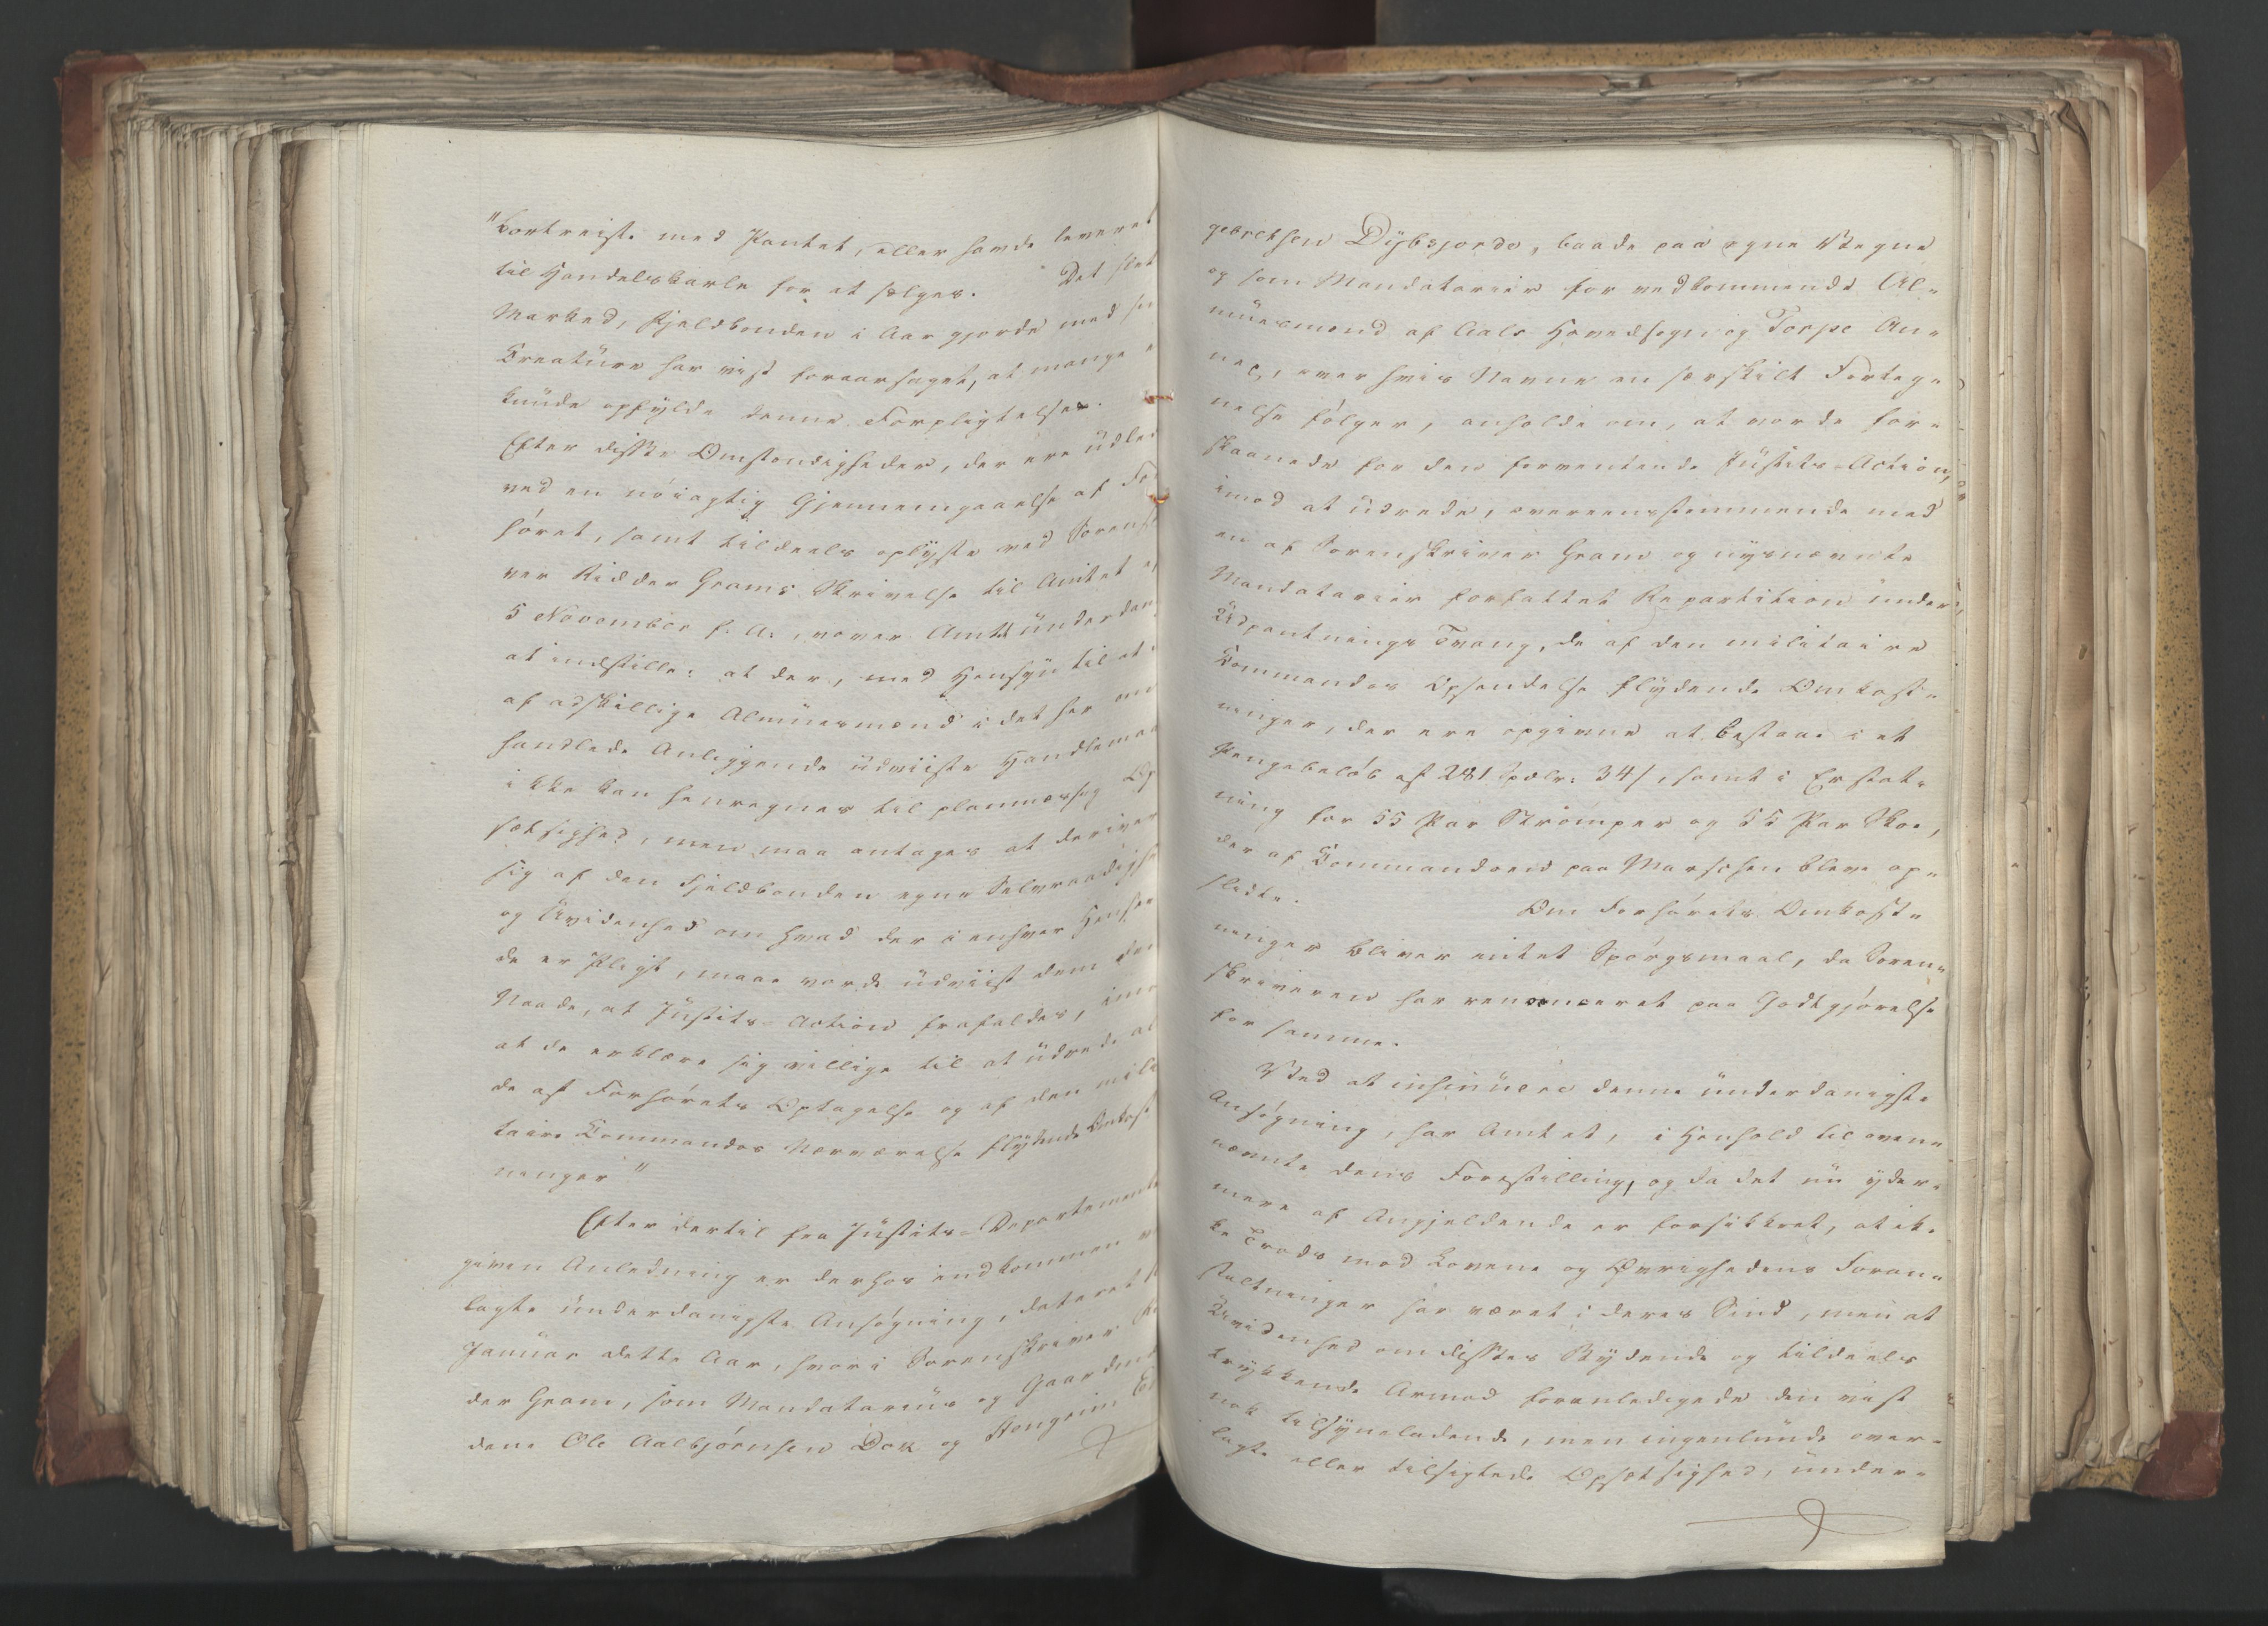 "bortreist med Pantet, eller havde leveret
til Handelskarle for at sælges. Det slet
Marked, Fjeldbonden i Aar gjorde med si
Creature har vist foraarsaget, at mange e
kunde opfylde denne Forpligtelse.
Efter disse Omstændigheder, der ere udle
ved en nöiagtig Gjennemgaaelse af For
höret, samt tildeels oplyste ved Sorenskr
ver Ridder Grams Skrivelse til Amtet af
5 November f. A., vover Amtet underdan
at indstille: at der, med Hensyn til at
af adskillige Almuesmænd i det her om
handlede Anliggende udviiste Handlemaa
ikke kan henregnes til planmæssig Op
sætsighed, men maa antages at derivere
sig af den Fjeldbonden egne Selvraadighe
og Uvidenhed om hvad der i enhver Hensee
de er Pligt, maae vorde udviist dem den
Naade, at Justits-Action frafaldes, imo
at de erklære sig villige til at udrede al
de af Forhörets Optagelse og af den mili
taire Commandos Nærværelse flydende Omkost
ninger"
Efter dertil fra Justits-Departemente
given Anledning er derhos indkommen ve
lagte underdanigste Ansögning, dateret
Januar dette Aar, hvori Sorenskriver Ri
der Gram, som Mandatarius og Gaardma
dene Ole Aalbjörnsen Dok og Hengrim En
gebretsen Dybsjordo, baade paa egne Vegne
og som Mandatarier for vedkommende Al-
muesmænd af Aals Hovedsogn og Torpe An-
nex, over hvis Navne en særskilt Forteg-
nelse fölger, anholde om, at vorde for-
skaanede for den forventende Justits-Action,
imod at udrede, overeensstemmende med
en af Sorenskriver Gram og nysnævnte
Mandatarier forfattet Repartition under
Udpantnings Tvang, de af den militaire
Commandos Opsendelse flydende Omkost-
ninger, der ere opgivne at bestaae i et
Pengebelöb af 281 Spdlr: 34 s, samt i Erstat-
ning for 55 Par Strömper og 55 Par Skoe,
der af Commandoen paa Marschen bleve op-
slidte. Om Forhörets Omkost-
ninger bliver intet Spörgsmaal, da Soren-
skriveren har renonceret paa Godtgjörelse
for samme.
Ved at insinuere denne underdanigste
Ansögning, har Amtet, i Henhold til oven-
nævnte dens Forestilling, og da det nu yder-
mere af Angjeldende er forsikkret, at ik-
ke Trods mod Lovene og Övrighedens Foran-
staltninger har været i deres Sind, men at
Uvidenhed om disses Bydende og tildeels
trykkende Armod foranledigede den vist
nok tilsyneladende, men ingenlunde over-
lagte eller tilsigtede Opsætsighed, under-